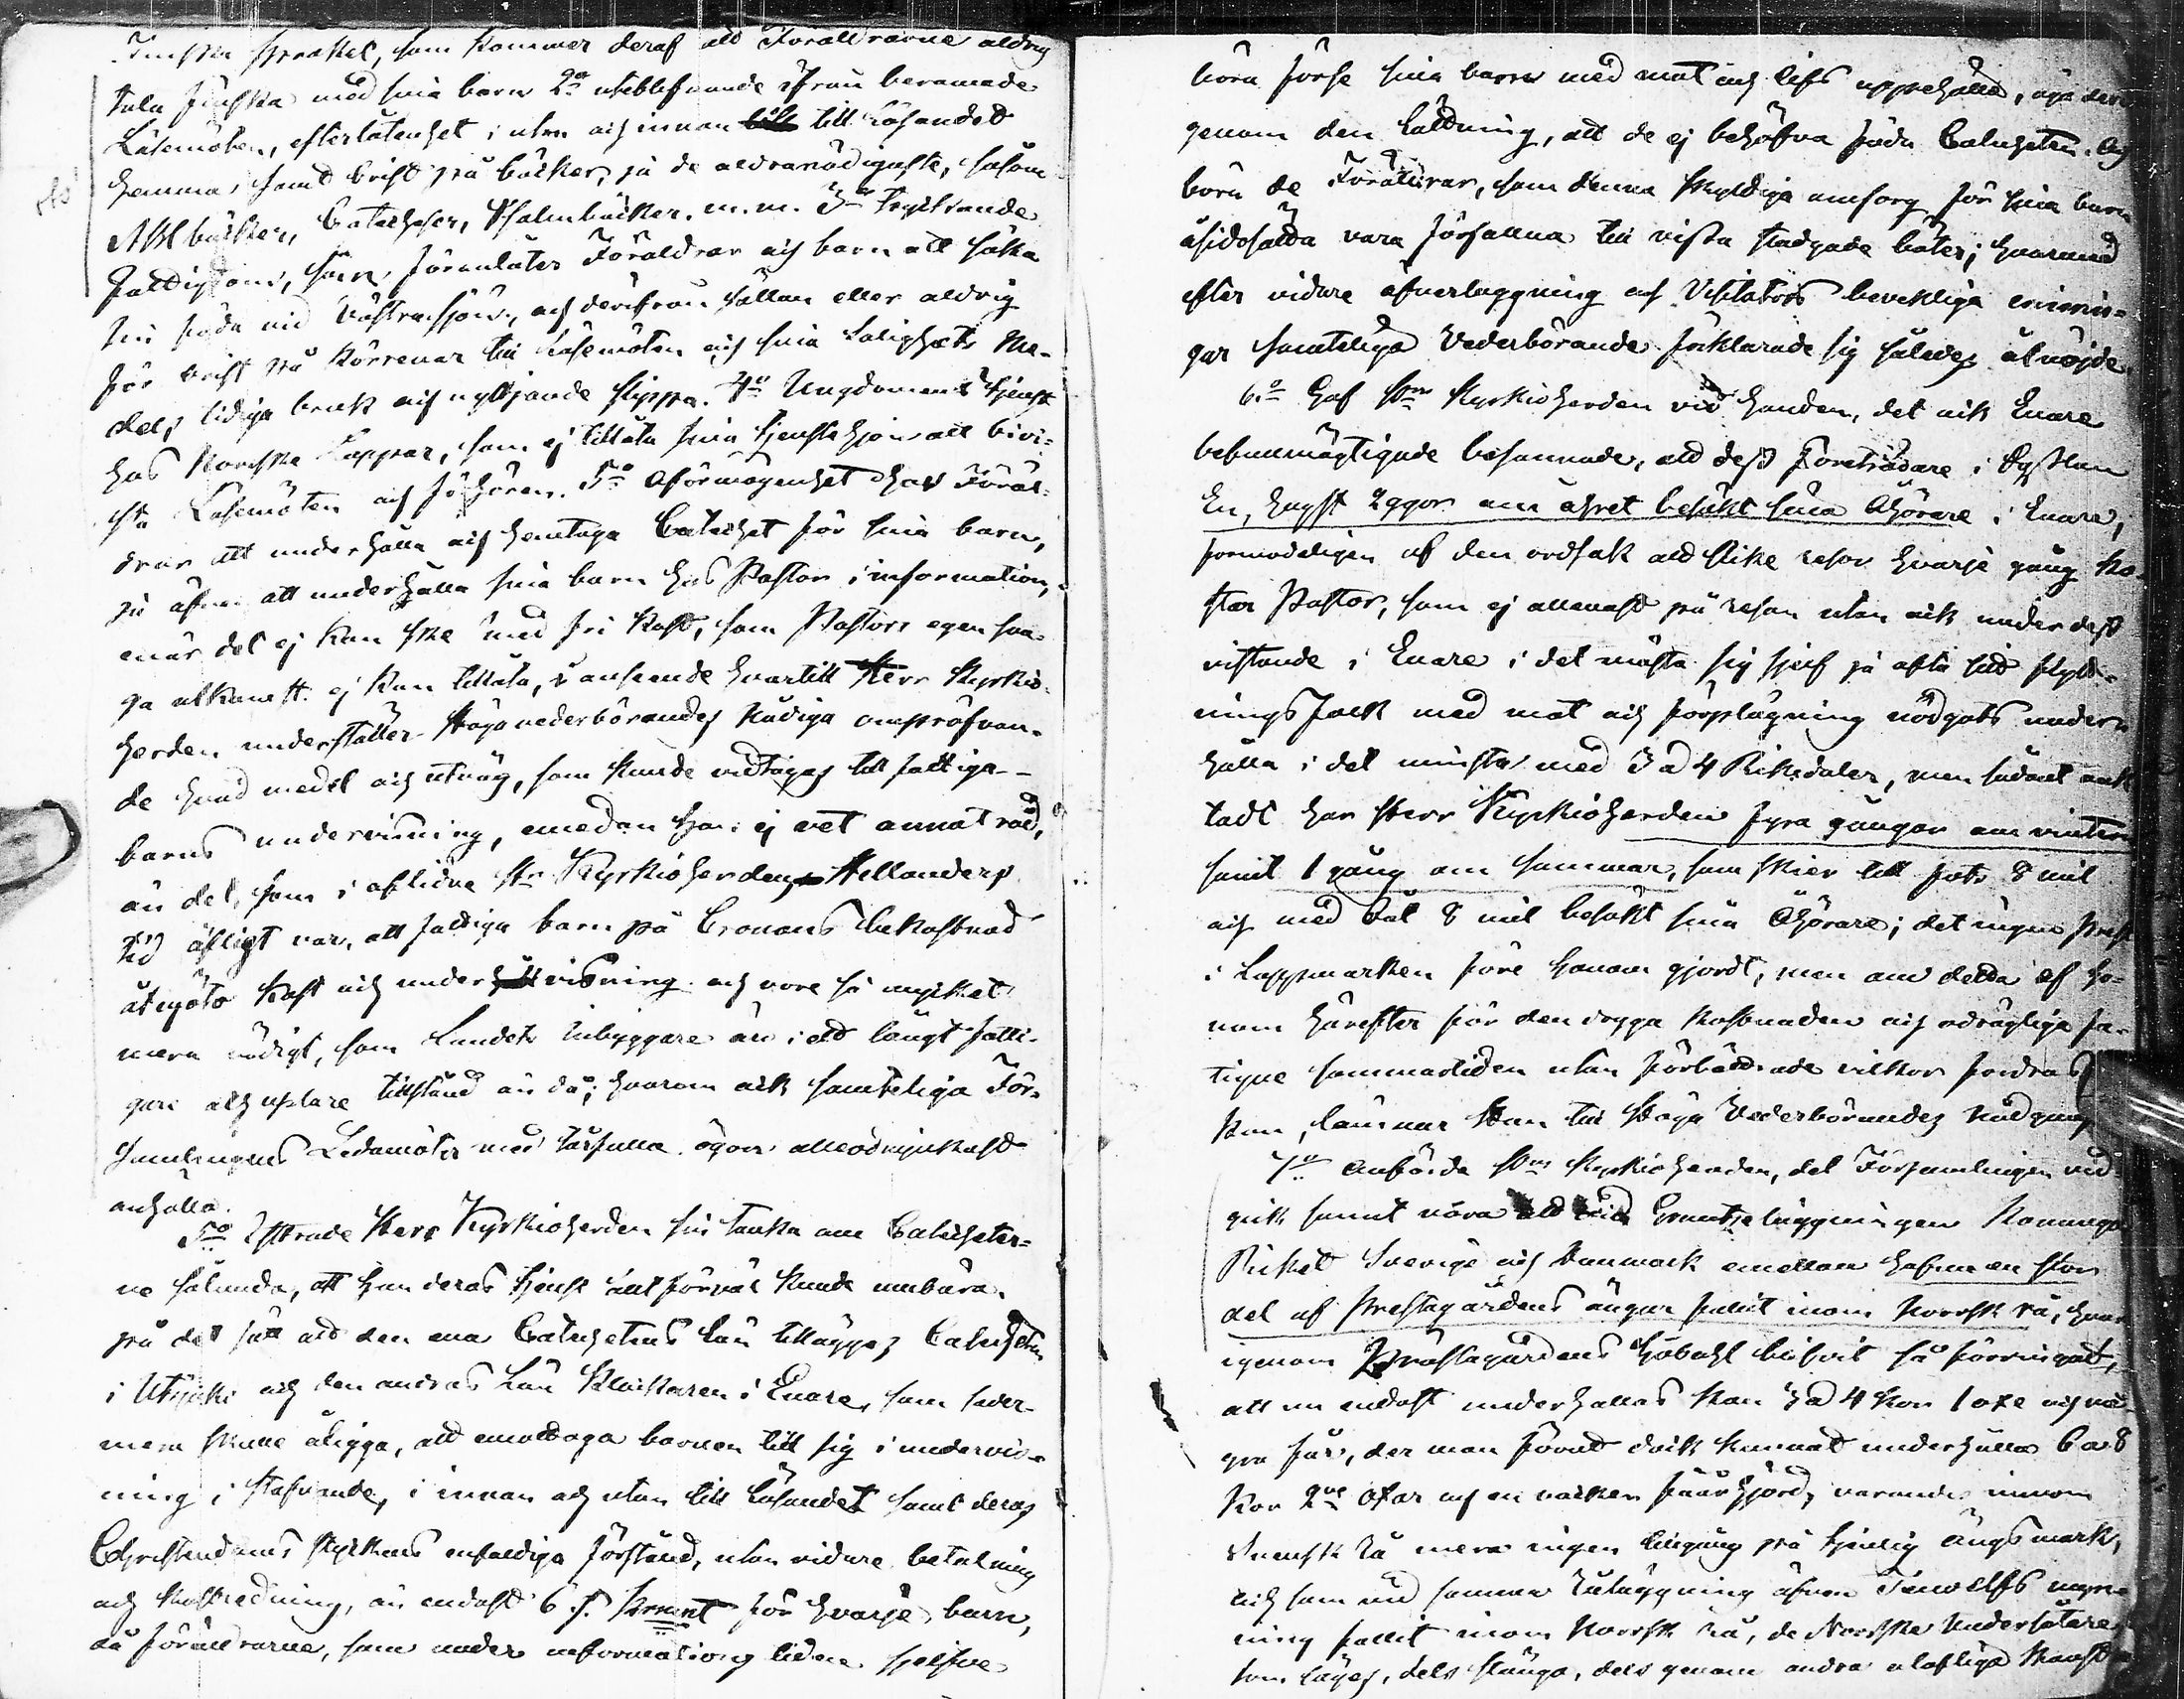 Finska språket, som kommer deraf att Föräldrarne aldrig
tala finska med sina barn 2o uteblifvande ifrån beramade
Läsemöten, efterlåtenhet i utan och innan till läsandet
hemma, samt brist på böcker, på de aldranödigaste, såsom
ABCböcker, Catecheser, Psalmböcker. m.m. 3o tryckande
fattigdom, som förenlåter Föräldrar och barn att söka
sin föda vid Västersjön, och derifrån sällan eller aldrig
för brist på körrenar till Läsemöten och sina salighets me-
dels tidiga bruk och nyttjande slippa. 4o Ungdomens tjenst
hos Norska Lappar, som ej tillåta sina tjenstehjon att bivi-
sta Läsemöten och förhören. 5o Oförmögenhet hos Föräl-
drar att underhålla och hemtaga Catechet för sina barn,
så äfven att underhålla sina barn hos Pastor i information,
när det ej kan ske med fri kost, som Pastors egen sva-
ga utkomst ej kan tillåta, i anseende hvartill Herr Kyrkio-
herden underställer Höga vederbörandes Nådiga ompröfvan-
de hvad medel och utväg, som kunde vidtagas till fattiga
barns undervisning, emedan han ej vet annat råd,
än det, som i aflidne Hr Kyrkioherden Hellanders
tid öfligt var, att fattiga barn på Cronans bekostnad
åtnjöto kost och undervisning och vore så mycket
mera nödigt, som Landets inbyggare äro i ett långt fatti-
gare och uslare tillstånd än då; hvarom ock samteliga För-
samlingens Ledamöter med tårfulla ögon allerödmjukast
anhålla.
5o Yttrade Herr Kyrkioherden sin tanka om Catecheter-
ne sålunda, att han deras tjenst allt förväl kunde umbära,
på det sätt att den ena Catechetens lön tillägges Catecheten
i Utsjoki och den andras Lön Klockaren i Enare, som seder-
mera skulle åligga, att emottaga barnen till sig i undervis-
ning i stafvande, i innan och utan till läsandet samt deras
Christendoms styckens enfaldiga förstånd, utan vidare betalning
och kostredning, än endast 6 s. Kront för hvarje barn,
då föräldrarne, som under informations tiden sjelfve
böra förse sina barn med mat och lifs uppehälle, äga der-
genom den lättning, att de ej behöfva föda Catecheten. Och
böra de Föräldrar, som denna skyldiga omsorg för sina barn
åsidosätta vara förfallna till vissa stadgade böter; hvarmed
efter vidare öfverläggning och Visitators bevekliga erinrin-
gar samteliga Vederbörande förklarade sig således åtnöjde.
6o Gaf Herr Kyrkioherden vid handen, det ock Enare
befullmägtigade besannade, att dess Företrädare i Sysslan
En, högst 2 ggor om året besökt sina Åhörare i Enare,
formodeligen af den ordsak att slike resor hvarje gång ko-
star Pastor, som ej allenast på resan utan ock under dess
vistande i Enare i det mästa sig sjelf så ofta tid skjut-
nings folk med mat och förplägning nödgats under-
hålla i det minsta med 3 a 4 Riksdaler, men sådant oak-
tadt har Herr Kyrkioherden fyra gångor om vintern
samt 1 gång om sommar, som sker till fots 8 mil
och med båt 8 mil besökt sina Åhörare; det ingen Prest
i Lappmarken före honom gjordt, men om detta af ho-
nom härefter för den dryga kostnaden och odrägliga fa-
tigue sommartiden utan förbättrade vilkor fordras
kan, lämnar Han till Höga Vederbörandes nåd
7o Anförde Herr Kyrkioherden, det Församlingen vid-
gick samt vara vid Gränseläggningen Konunga
Riket Sverige och Danmark emellan hafver en stor
del af Prestegårdens ängar fallit inom Norsk rå, hvar-
igenom Prästegårdens Höbohl blifvit så förringat,
att nu endast underhållas kan 3 a 4 kor 1 oxe och nå-
gra får, der man förut dock kunnat underhålla 6 a 8
Kor 2ne Oxar och en vacker fårhjord, varande innom
Svensk rå mera ingen tillgång på tjenlig ängsmark,
och som vid samma råläggning äfven Teno Elfs
ning fallit inom Norsk rå, de Norske Undersåtare
som dels stänga, dels genom andra olofliga